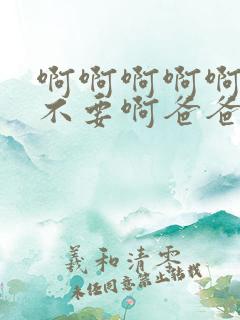 啊啊啊啊啊
不要啊爸爸
羲和清零
未经同意禁止转载